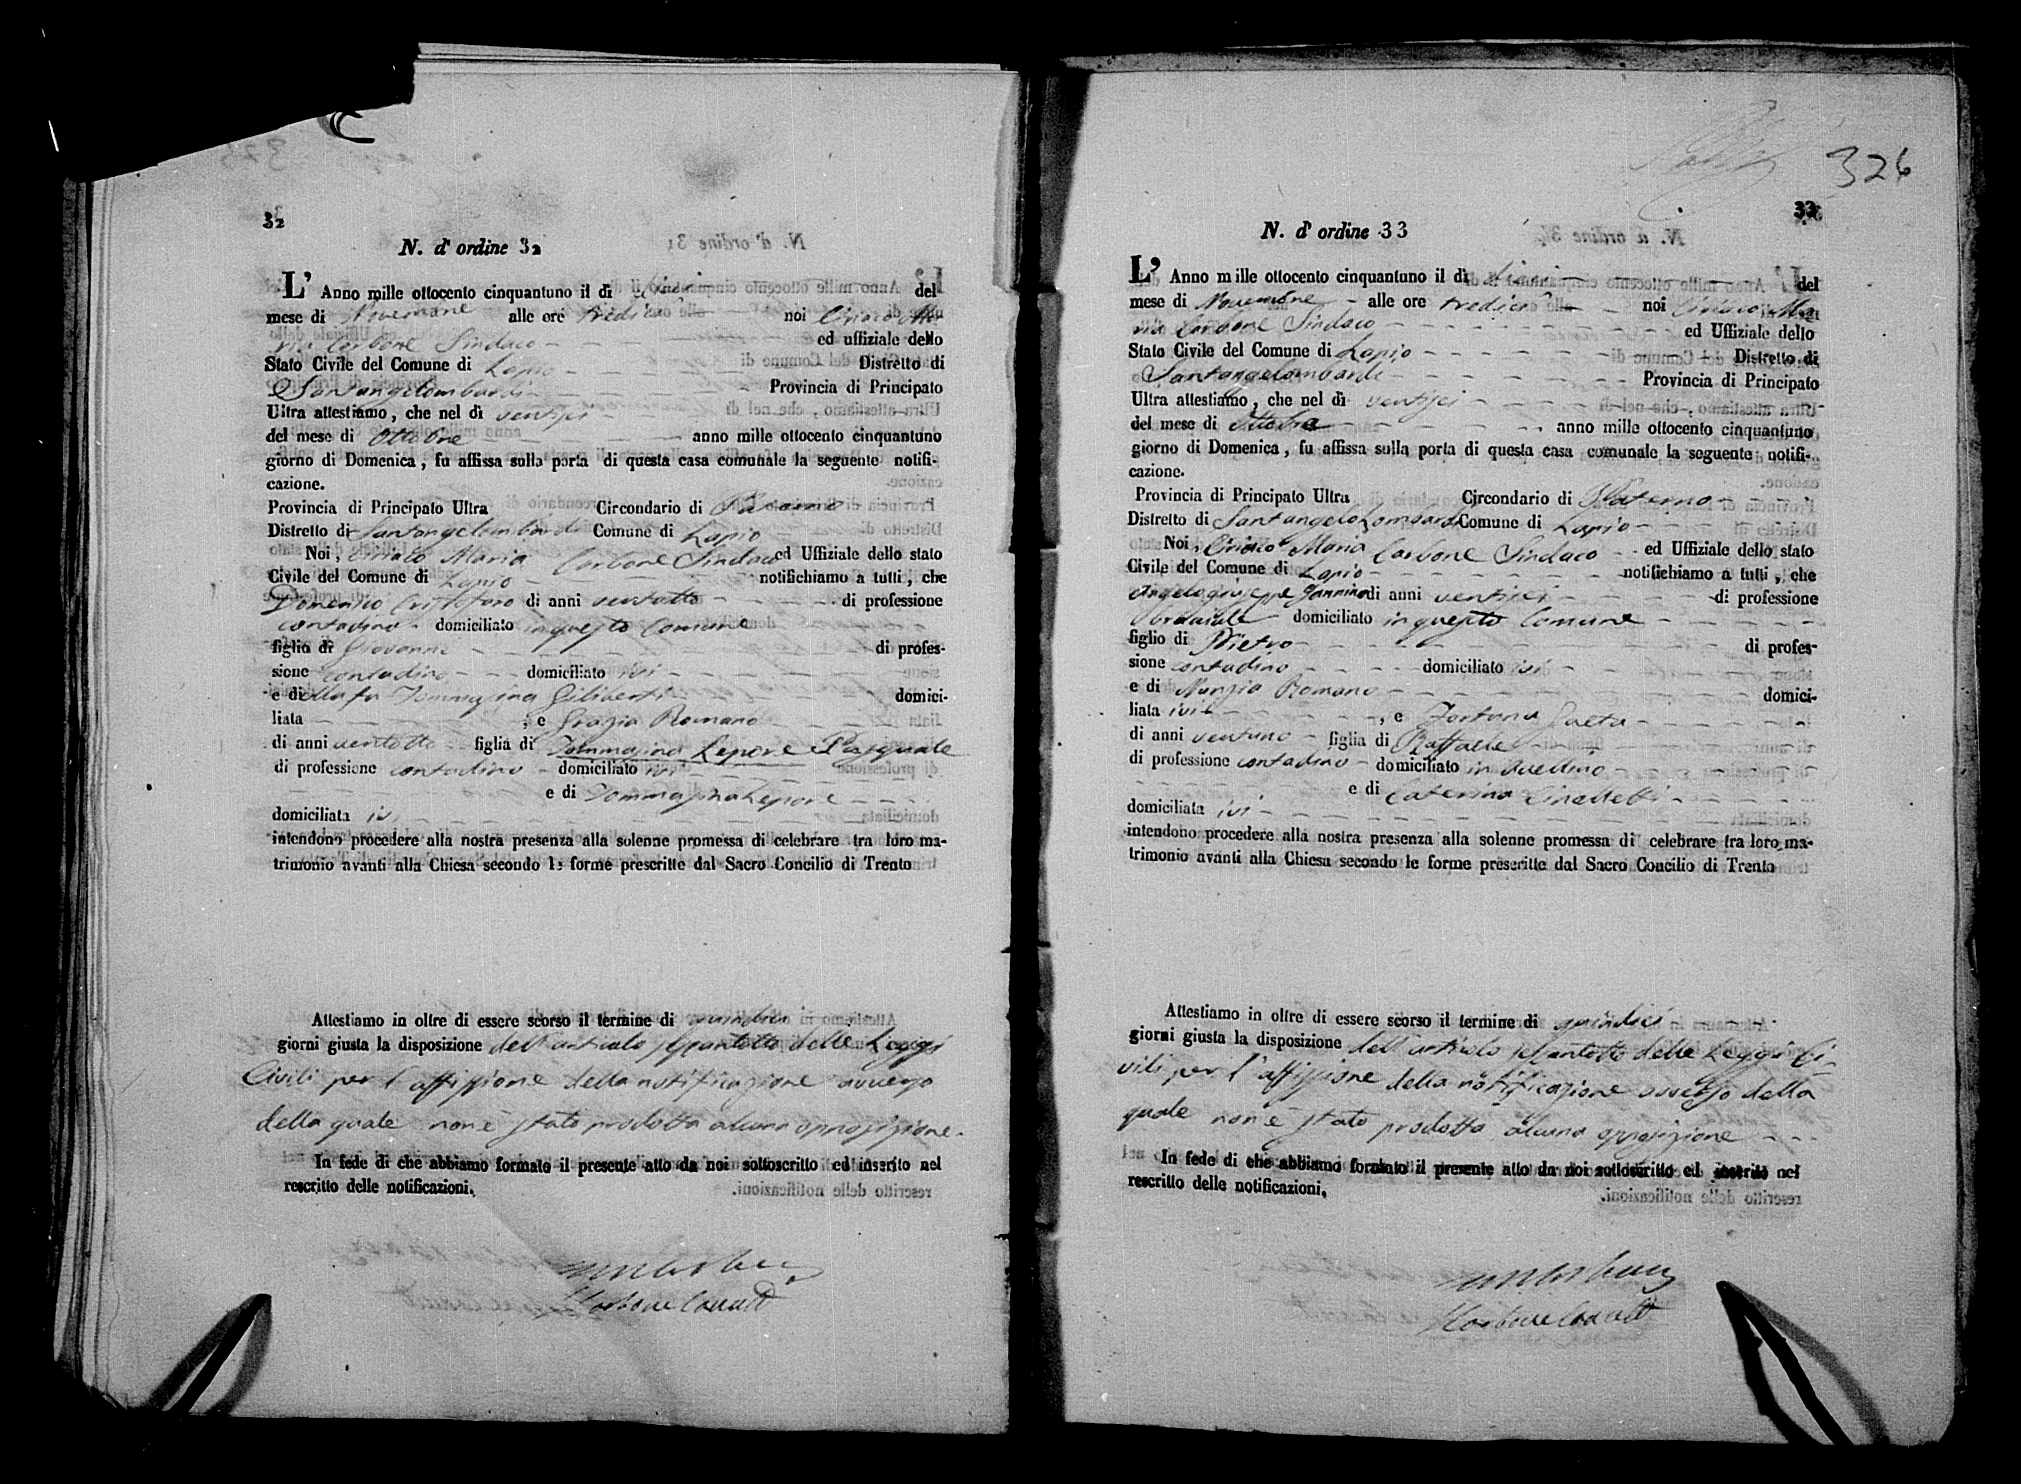 32
N. d'ordine 32
L' Anno mille ottocento cinquantuno il dì dieci del
mese di Novembre alle ore tredici noi Ciriaco Ma
ria Carbone Sindaco ed uffiziale dello
Stato Civile del Comune di Lapio Distretto di
Santangelolombardi Provincia di Principato
Ultra attestiamo, che nel dì ventisei
del mese di Ottobre anno mille ottocento cinquantuno
giorno di Domenica, fu affissa sulla porta di questa casa comunale la seguente notifi-
cazione.
Provincia di Principato Ultra Circondario di Paterno
Distretto di Santangelolombardi Comune di Lapio
Noi, Ciriaco Maria Carbone Sindaco ed Uffiziale dello stato
Civile del Comune di Lapio notifichiamo a tutti, che
Domenico Cristofaro di anni ventotto di professione
contadino domiciliato in questo Comune
figlio di Giovanni di profes-
sione contadino domiciliato ivi
e di della fu Tommasina Giliberti domici-
liata , e Grazia Romano
di anni ventotto figlia di Tommasina Lepore Pasquale
di professione contadino domiciliato ivi
e di Tommasina Lepore
domiciliata ivi
intendono procedere alla nostra presenza alla solenne promessa di celebrare tra loro ma-
trimonio avanti alla Chiesa secondo le forme prescritte dal Sacro Concilio di Trento
Attestiamo in oltre di essere scorso il termine di quindici
giorni giusta la disposizione dell'articolo sessantotto delle Leggi
Civili per l'affissione della notificazione avverso
della quale non è stato prodotta alcuna opposizione.
In fede di che abbiamo formato il presente atto da noi sottoscritto ed inserito nel
rescritto delle notificazioni.
Carbone
326
33
N. d'ordine 33
L' Anno mille ottocento cinquantuno il dì dieci del
mese di Novembre alle ore tredici noi Ciriaco Ma
ria Carbone Sindaco ed Uffiziale dello
Stato Civile del Comune di Lapio Distretto di
Santangelolombardi Provincia di Principato
Ultra attestiamo, che nel dì ventisei
del mese di Ottobre anno mille ottocento cinquantuno
giorno di Domenica, fu affissa sulla porta di questa casa comunale la seguente notifi-
cazione.
Provincia di Principato Ultra Circondario di Paterno
Distretto di Santangelo Lombardi Comune di Lapio
Noi, Ciriaco Maria Carbone Sindaco ed Uffiziale dello stato
Civile del Comune di Lapio notifichiamo a tutti, che
Angelogiuseppe Jannino di anni ventisei di professione
bracciale domiciliato in questo Comune
figlio di Pietro di profes-
sione contadino domiciliato ivi
e di Nunzia Romano domici-
liata ivi , e Fortuna Gaeta
di anni ventuno figlia di Raffaele
di professione contadino domiciliato in Avellino
e di Caterina
domiciliata ivi
intendono procedere alla nostra presenza alla solenne promessa di celebrare tra loro ma-
trimonio avanti alla Chiesa secondo le forme prescritte dal Sacro Concilio di Trento
Attestiamo in oltre di essere scorso il termine di quindici
giorni giusta la disposizione dell'articolo sessantotto delle Leggi Ci-
vili per l'affissione della notificazione avverso della
quale non è stato prodotta alcuna opposizione
In fede di che abbiamo formato il presente atto da noi sottoscritto ed inserito nel
rescritto delle notificazioni.
Carbone